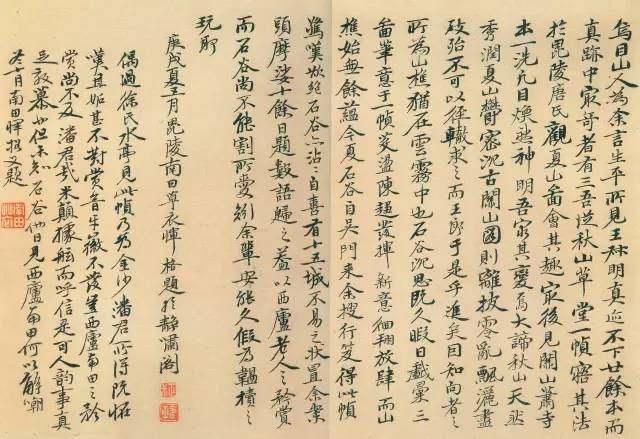 烏目山人為余言生平所見王叔明真迹不下廿餘本而
真跡中最奇者有三吾從秋山草堂一幀悟其法
於毘陵唐氏觀夏山圖會其趣最後見關山蕭寺
本一洗凡目煥然神明吾窮其變焉大諦秋山天然
秀潤夏山鬱密沉古關山圖則離披零亂飄灑盡
致殆不可以徑轍求之而王郎于是乎進矣因知向者之
所為山樵猶在雲霧中也石谷沉思既久暇日戲彙三
圖筆意于一幀蕩滌陳趨發揮新意徊翔放肆而山
樵始無餘蘊今夏石谷自吳門來余搜行笈得此幀
驚嘆欲絕石谷亦沾沾自喜有十五城不易之狀置余案
頭摩娑十餘日題數語歸之蓋以西廬老人之矜賞
而石谷尚不能割所愛矧余輩安能久假為韞櫝之
玩耶
庚戌夏五月毘陵南田草衣惲格題於靜嘯閣
偶過徐氏水亭見此幀乃為金沙潘君所得既怪
嘆且妬甚不對賞音牙徽不發豈西廬南田之矜
賞尚不及潘君哉米顛據舷而呼信是可人韻事真
足效慕也但未知石谷他日見西廬南田何以解嘲
冬十月南田惲格又題